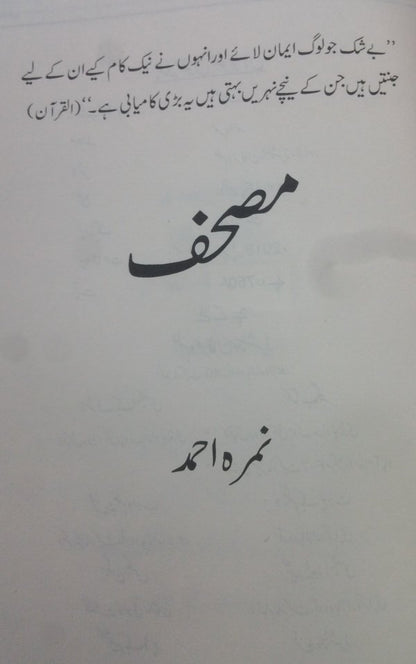 ’’بے شک جو لوگ ایمان لائے اور انہوں نے نیک کام کیے ان کے لیے
جنتیں ہیں جن کے نیچے نہریں بہتی ہیں یہ بڑی کامیابی ہے۔‘‘ (القرآن)
مصحف
نمرہ احمد